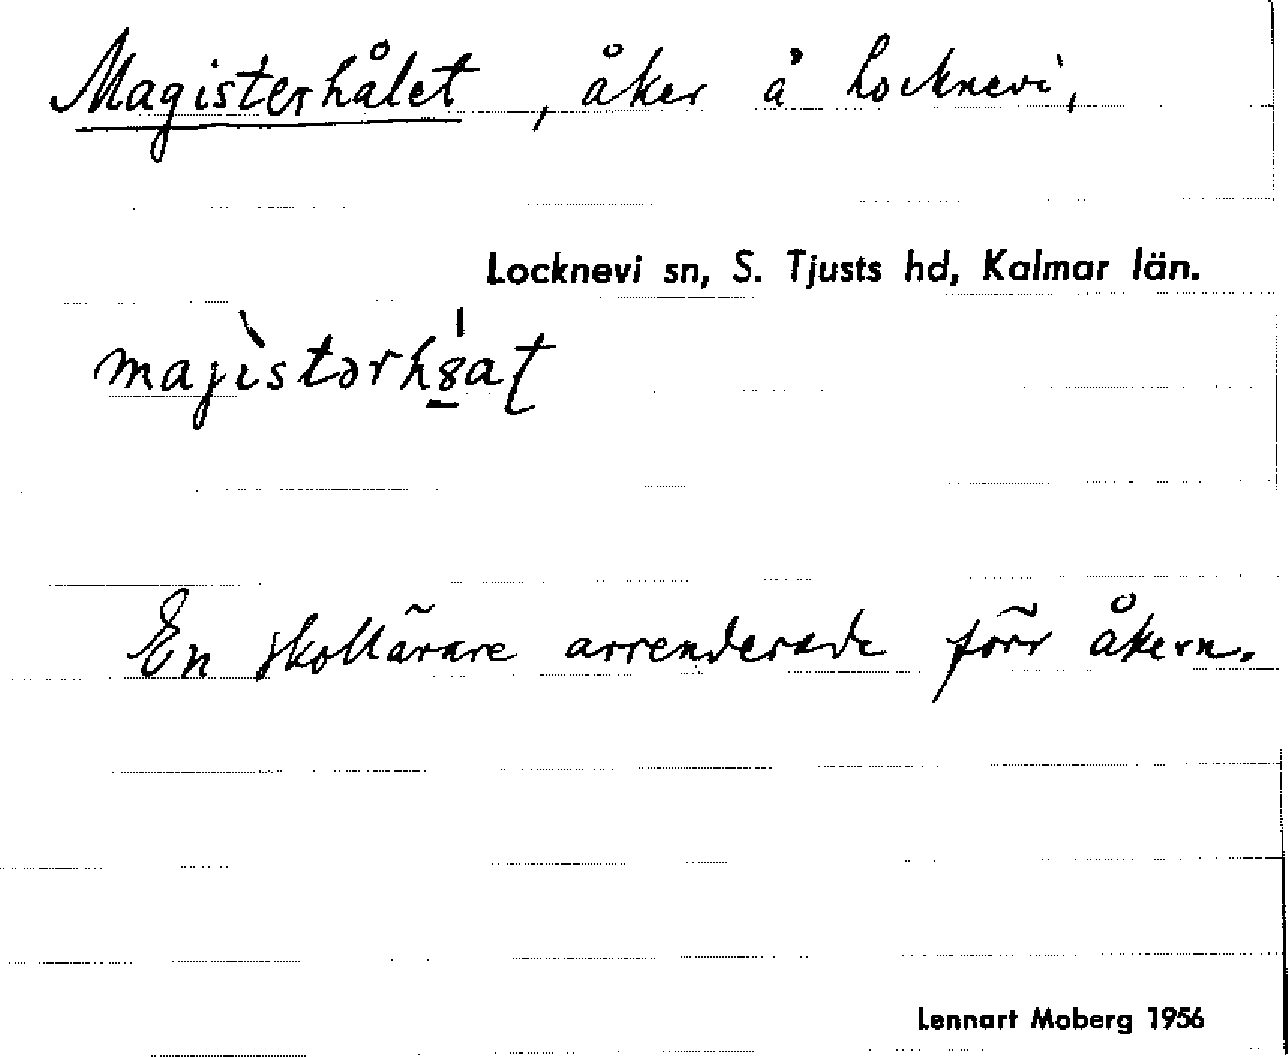 Magisterhålet, åker å Locknevi,
Locknevi sn, S. Tjusts hd, Kalmar län.
En skollärare arrenderade förr åkern.
Lennart Moberg 1956